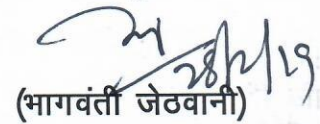 28/2/19
(भागवंती जेठवानी)